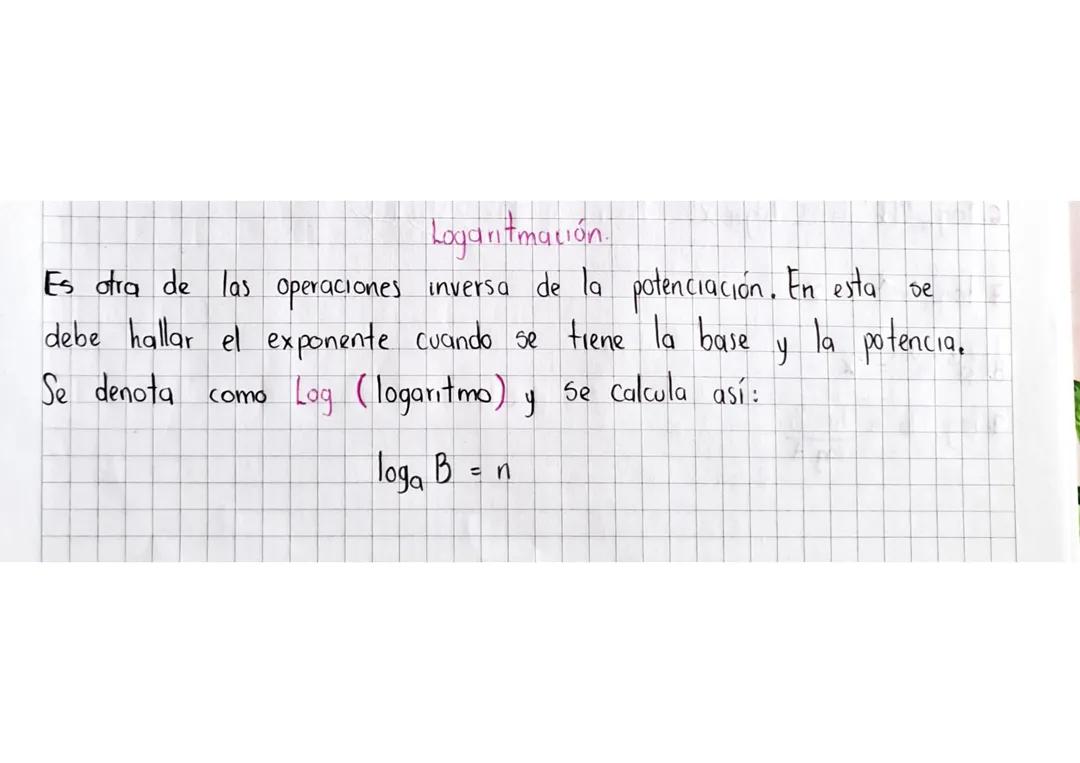 Logaritmación.
Es otra de las operaciones inversa de la potenciación. En esta se
debe hallar el exponente cuando se tiene la base y la potencia.
Se denota como Log (logaritmo) y se calcula así:
logₐ B = n